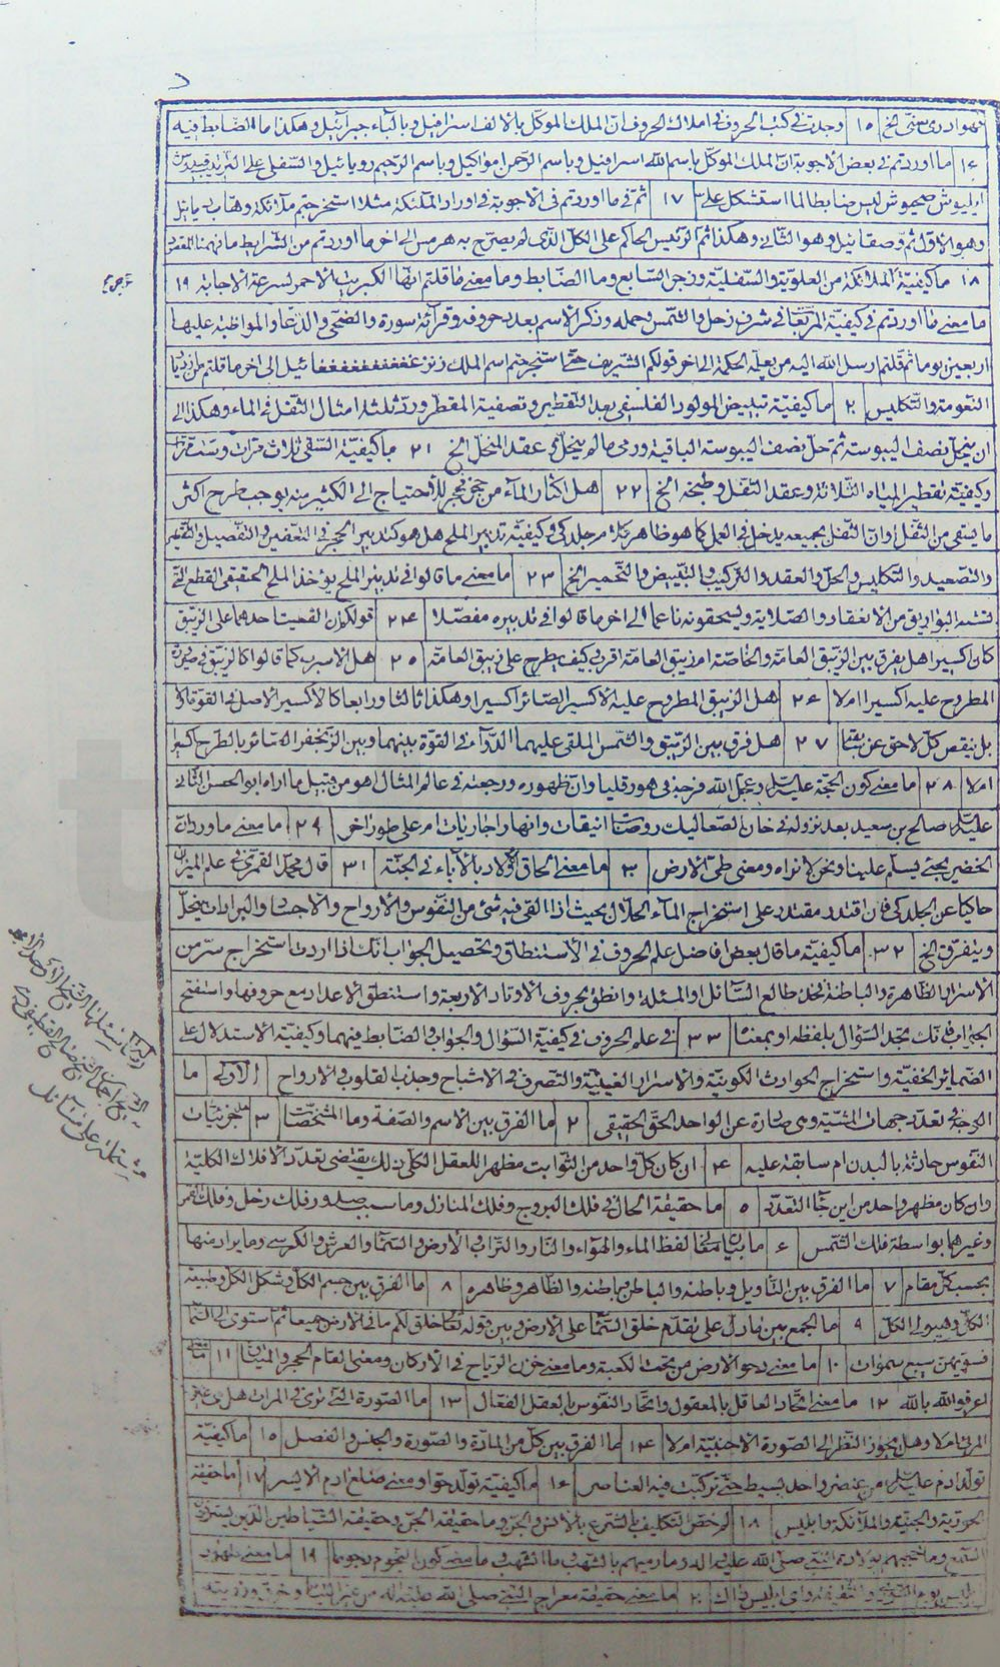 ١٥ وجدت في كتب الحروف في املاك الحروف ان الملك الموكل بالالف اسرافيل وبالباء جبرائيل وهكذا ما الضابط فيه
١٦ ما اوردتم في بعض الاجوبة ان الملك الموكل باسم الله اسرافيل وباسم الرحمن امواكيل وباسم الرحيم روبائيل والسفلي على
ليس ضابطا لما استشكل علي ١٧ ثم في ما اوردتم في الاجوبة في اوراد الملئكة مثلا استخرجتم ملائكة وهاب
وهو الاول ثم وصفائيل وهو الثاني وهكذا ثم الرئيس الحاكم على الكل الذي لم يصرح به هرمس الى اخر ما اوردتم من الشرايط ما فهمنا
١٨ ما كيفية الملائكة من العلوية والسفلية وزجر السابع وما الضابط وما معنى ما قلتم انها الكبريت الاحمر لسرعة الاجابة ١٩
ما معنى ما اوردتم في كيفية المربعات في شرف زحل والشمس وحمله وذكر الاسم بعدد حروفه وقرائة سورة والضحى والدعاء والمواظبة عليها
اربعين يوما ثم قلتم ارسل الله اليه من يعلمه الحكمة الى اخر قولكم الشريف حتى استخرجتم اسم الملك الى اخر ما قلتم
النعومة والتكليس ٢٠ ما كيفية تبييض المولود الفلسفي بعد التقطير وتصفية المقطر ورد ثلثة امثال الثقل في الماء وهكذا الى
ان ينحل نصف اليبوسة ثم حل نصف اليبوسة الباقية ورمي ما لم ينحل في عقد المنحل الخ ٢١ ما كيفية السقي ثلاث مرات وست مرات
وكيفية تقطير المياه الثلاثة وعقد الثقل وطبخه الخ ٢٢ هل اكثار الماء من حجر للاحتياج الى الكثير منه يوجب طرح اكثر
ما يبقى من الثقل او ان الثقل بجميعه يدخل في العمل كما هو ظاهر كلام جلدكي وكيفية تدبير الملح هل هو كتدبير الحجر في التعفين والتفصيل
والتصعيد والتكليس والحل والعقد والتركيب والتبييض والتحمير الخ ٢٣ ما معنى ما قالوا في تدبير الملح يؤخذ الملح الحقيقي القطع التي
تشبه البواريق من الانعقاد والصلابة ويسحقونه ناعما الى اخر ما قالوا في تدبيره مفصلا ٢٤ قولكم ان القمر احدهما على الزيبق
كان اكسيرا هل يفرق بين الزيبق العامة والخاصة ام زيبق العامة اقرب وكيف يطرح على زيبق العامة ٢٥ هل الاسرب كما قالوا كالزيبق في صيرورة
المطروح عليه اكسيرا ام لا ٢٦ هل الزيبق المطروح عليه الاكسير الصائر اكسيرا وهكذا ثالثا ورابعا كالاكسير الاصل في القوة ام لا
بل ينقص كل لاحق عن سابقه ٢٧ هل فرق بين الزيبق والشمس الملقى عليهما الدواء في القوة بينهما وبين الزنجفر الصائر بالطرح اكسيرا
ام لا ٢٨ ما معنى كون الحجة عليه السلام وعجل الله فرجه في هورقليا وان ظهوره ورجعته في عالم المثال اهو من قبيل ما اراه ابو الحسن الثاني
عليه السلام صالح بن سعيد بعد نزوله في خان الصعاليك روضات انيقات وانهارا جاريات ام على طور اخر ٢٩ ما معنى ما ورد ان
الخضر يجئ يسلم علينا ونحن لا نراه ومعنى طي الارض ٣٠ ما معنى الحاق الاولاد بالاباء في الجنة ٣١ قال محمد القمري في علم الميزان
حاكيا عن الجلدكي فان اقتدر مقتدر على استخراج الماء الحلال بحيث اذا القي فيه شئ من النفوس والارواح والاجساد والبرادات ينحل
ويتفرق الخ ٣٢ ما كيفية ما قال بعض افاضل علم الحروف في الاستنطاق وتحصيل الجواب انك اذا اردت استخراج سر من
الاسرار الظاهرة والباطنة فخذ طالع السائل او المسئلة وانطق بحروف الاوتاد الاربعة واستنطق الاعداد مع حروفها واستفتح
الجواب فانك تجد السؤال بلفظه او بمعناه ٣٣ في علم الحروف في كيفية السؤال والجواب والضابط فيهما وكيفية الاستدلال على
الضمائر الخفية واستخراج الحوادث الكونية والاسرار الغيبية والتصرف في الاشباح وجذب القلوب والارواح الاولى ما
الوجه في تعدد جهات المشية وهي صادرة عن الواحد الحق الحقيقي ٢ ما الفرق بين الاسم والصفة وما المشخصات ٣ جزئيات
النفوس حادثة بالبدن ام سابقة عليه ٤ ان كان كل واحد من الثوابت مظهرا للعقل الكلي ذلك يقتضى تعدد الافلاك الكلية
وان كان مظهر واحد من اين جاء التعدد ٥ ما حقيقة الحال في فلك البروج وفلك المنازل وما سبب صدور فلك زحل وفلك القمر
وغيرهما بواسطة فلك الشمس ٦ ما بيان معاني لفظ الماء والهواء والنار والتراب والارض والسماء والعرش والكرسي وما يراد منها
بحسب كل مقام ٧ ما الفرق بين التاويل وباطنه والباطن وباطنه والظاهر وظاهره ٨ ما الفرق بين جسم الكل وشكل الكل وطبيعة
الكل وهيولى الكل ٩ ما الجمع بين ما دل على تقدم خلق السماء على الارض وبين قوله تعالى خلق لكم ما في الارض جميعا ثم استوى الى السماء
فسويهن سبع سموات ١٠ ما معنى دحو الارض من تحت الكعبة وما معنى خزن الرياح في الاركان ومعنى القام الحجر والميثاق ١١ ما معنى
اعرفوا الله بالله ١٢ ما معنى اتحاد العاقل بالمعقول واتحاد النفوس بالعقل الفعال ١٣ ما الصورة التي ترى في المرات هل هي عين
المرئي ام لا وهل يجوز النظر الى الصورة الاجنبية ام لا ١٤ ما الفرق بين كل من المادة والصورة والجنس والفصل ١٥ ما كيفية
تولد ادم عليه السلام من عنصر واحد بسيط حتى تركبت فيه العناصر ١٦ ما كيفية تولد حوا ومعنى ضلع ادم الايسر ١٧ ما حقيقة
الحورية والجنية والملائكة وابليس ١٨ لم خص التكليف بالشرع بالانس والجن وما حقيقة الجن وحقيقة الشياطين الذين يسترقون
السمع وما حجبهم بولادة النبي صلى الله عليه واله وما رميهم بالشهب وما الشهب وما معنى كون النجوم رجوما ١٩ ما معنى ظهور
٢٠ ما معنى حقيقة معراج النبي صلى الله عليه واله من غير